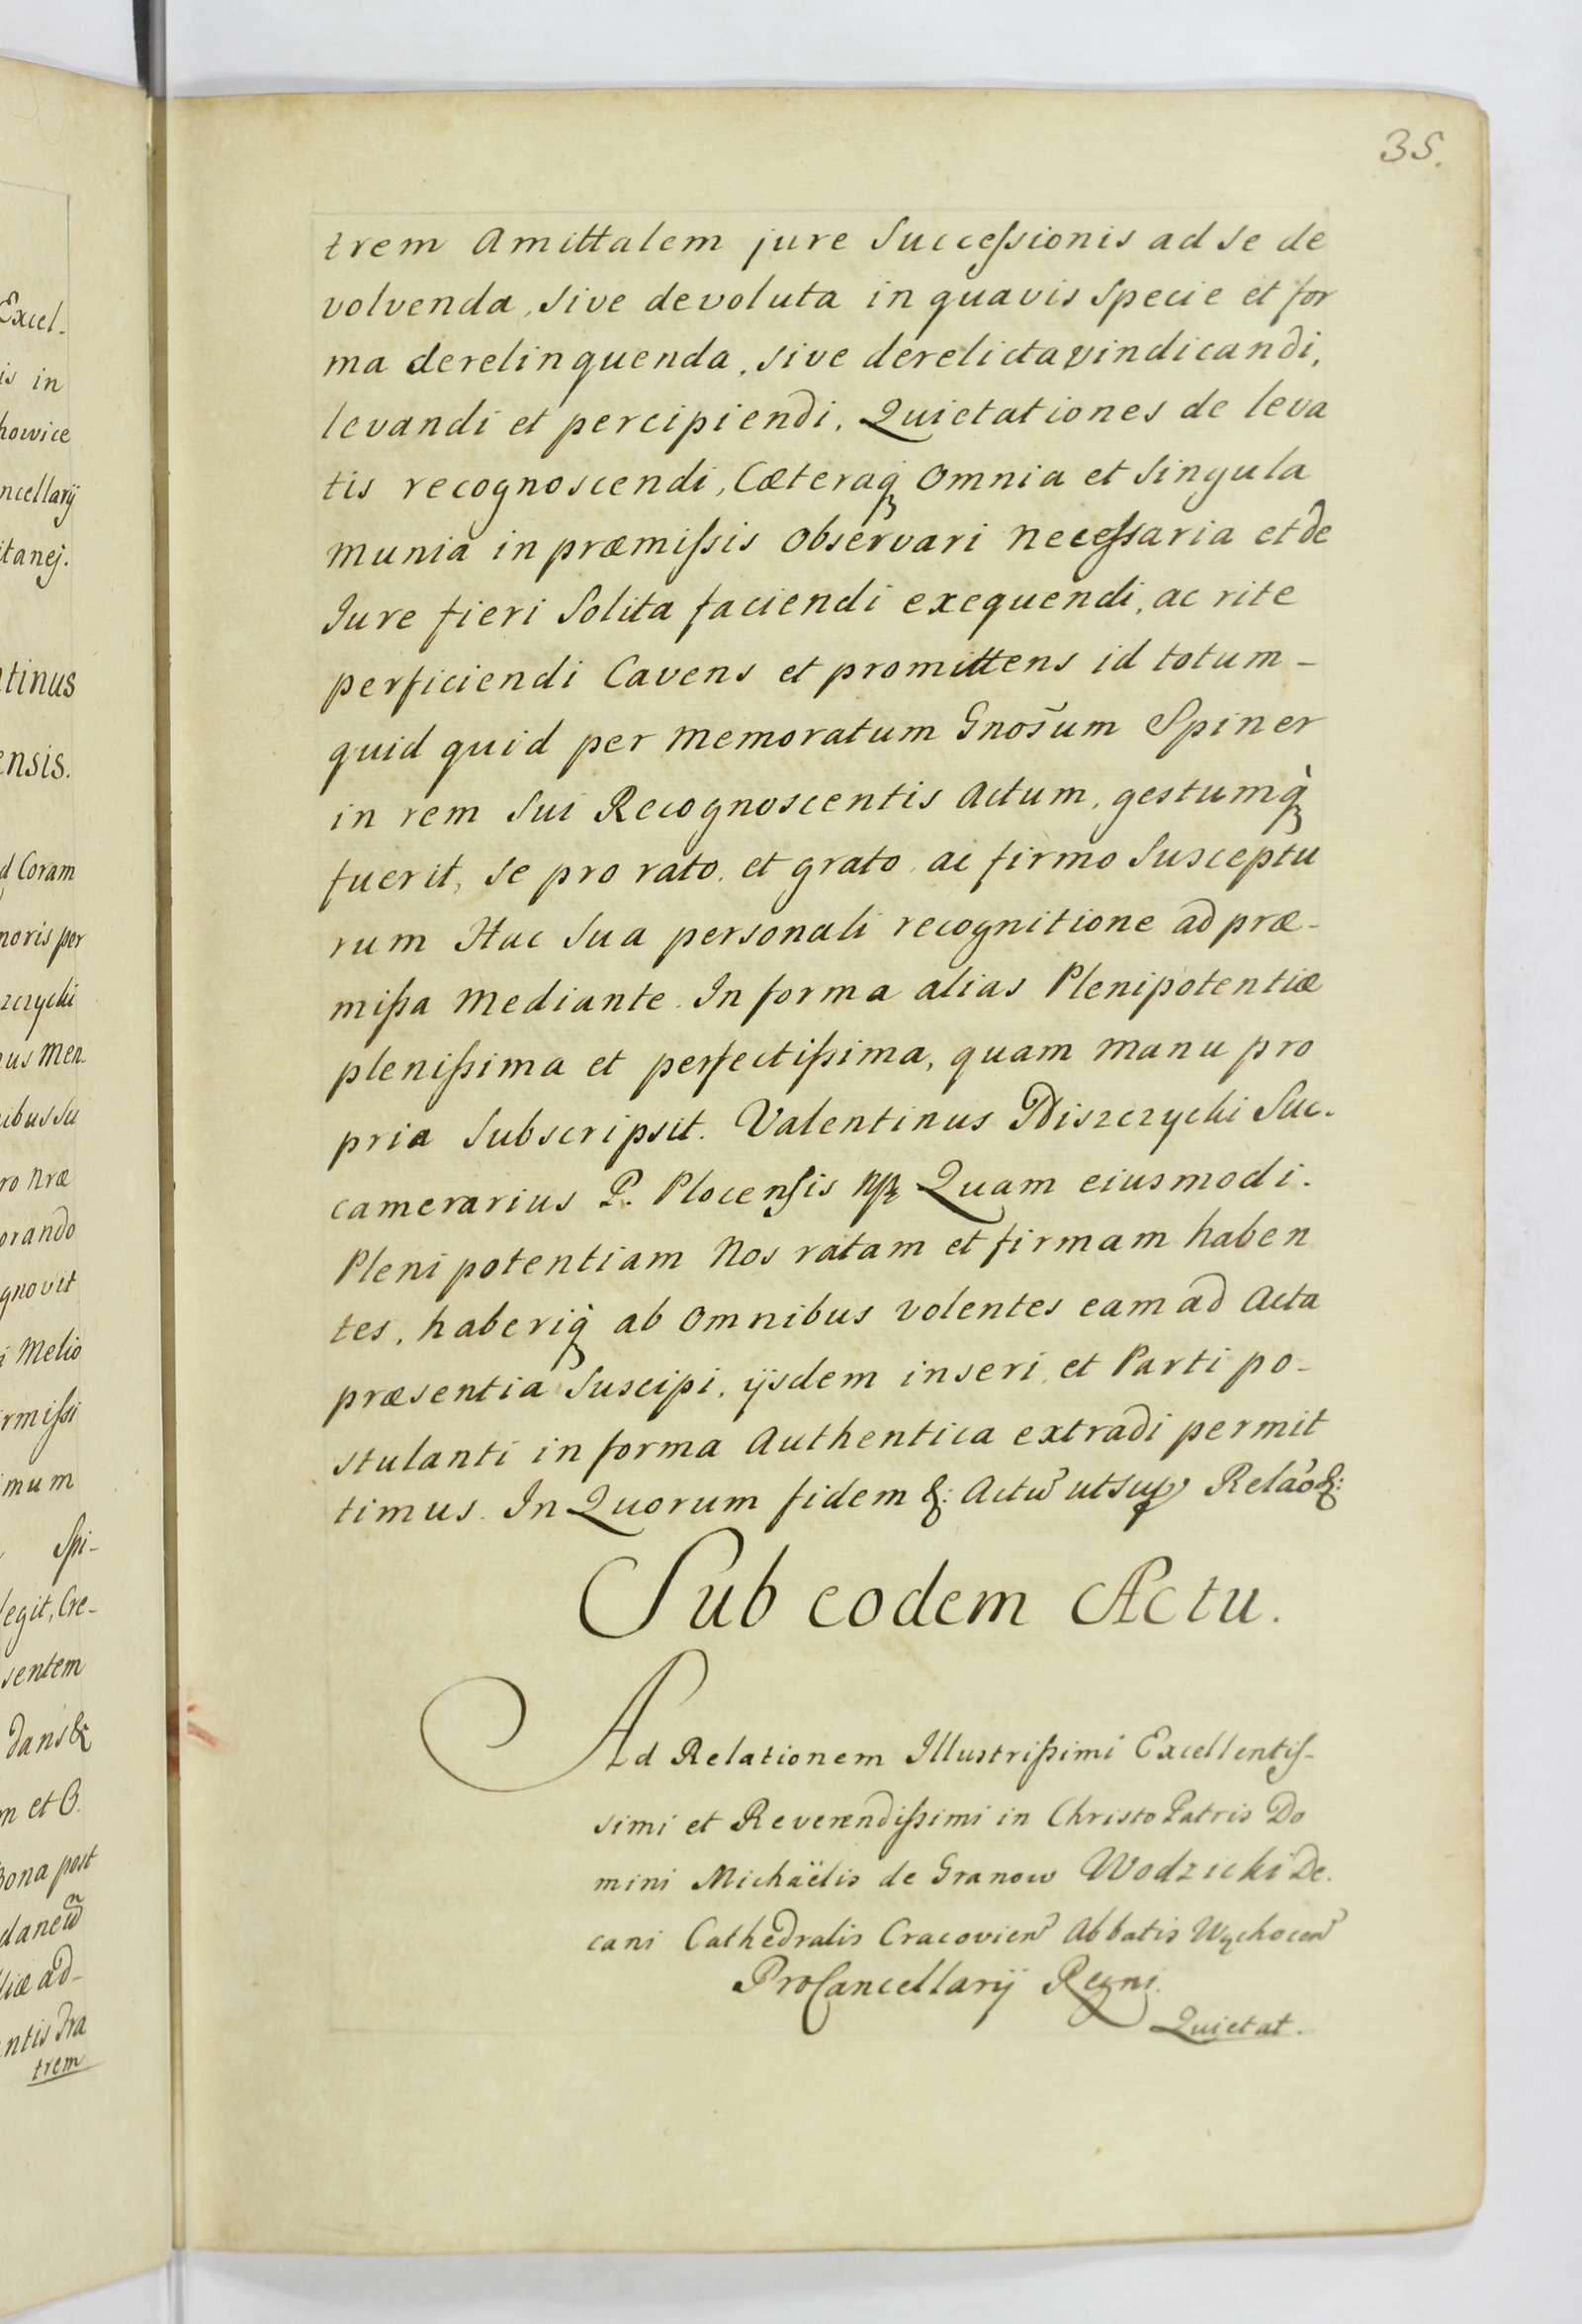 Excel-
is in
howice
ncellarÿ
itanej.
ntinus
ensis.
d Coram
noris per
szczycki
nus Men
ibus su
ro nræ
orando
gnovit
i Melio
rmiſsi
imum
Spi-
legit, Cre-
sentem
dans &
m et B.
Bona post
liæ ad-
ntis Fra
trem
35.
trem Amittalem jure Succeſsionis ad se de
volvenda, sive devoluta in quavis Specie et for
ma derelinquenda, sive derelicta vindicandi,
levandi et percipiendi, Quietationes de leva
tis recognoscendi, Cæteraq́ꝫ Omnia et Singula
munia in præmiſsis Observari neceſsaria et de
Jure fieri Solita faciendi exequendi, ac rite
perficiendi Cavens et promittens id totum-
quid quid per memoratum Gnosũm Spiner
in rem Sui Recognoscentis Actum, gestumq̀ꝫ
fuerit, se pro rato, et grato, ac firmo Susceptu
rum Hac Sua personali recognitione ad præ-
miſsa mediante. In forma alias Plenipotentiæ
pleniſsima et perfectiſsima, quam manu pro
pria Subscripsit. Valentinus Piszczycki Suc-
camerarius P. Plocenſis mp Quam eiusmodi.
Plenipotentiam Nos ratam et firmam haben
tes, haberiq̀ꝫ ab Omnibus volentes eam ad Acta
præsentia Suscipi, ijsdem inseri, et Parti po-
stulanti in forma Authentica extradi permit
timus. In Quorum fidem &: Actũ ut sup Relaõ &:
Sub eodem Actu.
Ad Relationem Illustriſsimi Excellentiſ-
simi et Reverendiſsimi in Christo Patris Do
mini Michaëlis de Granow Wodzicki De.
cani Cathedralis Cracovien̄ Abbatis Wąchocen̄
ProCancellarÿ Regni.
Quietat.